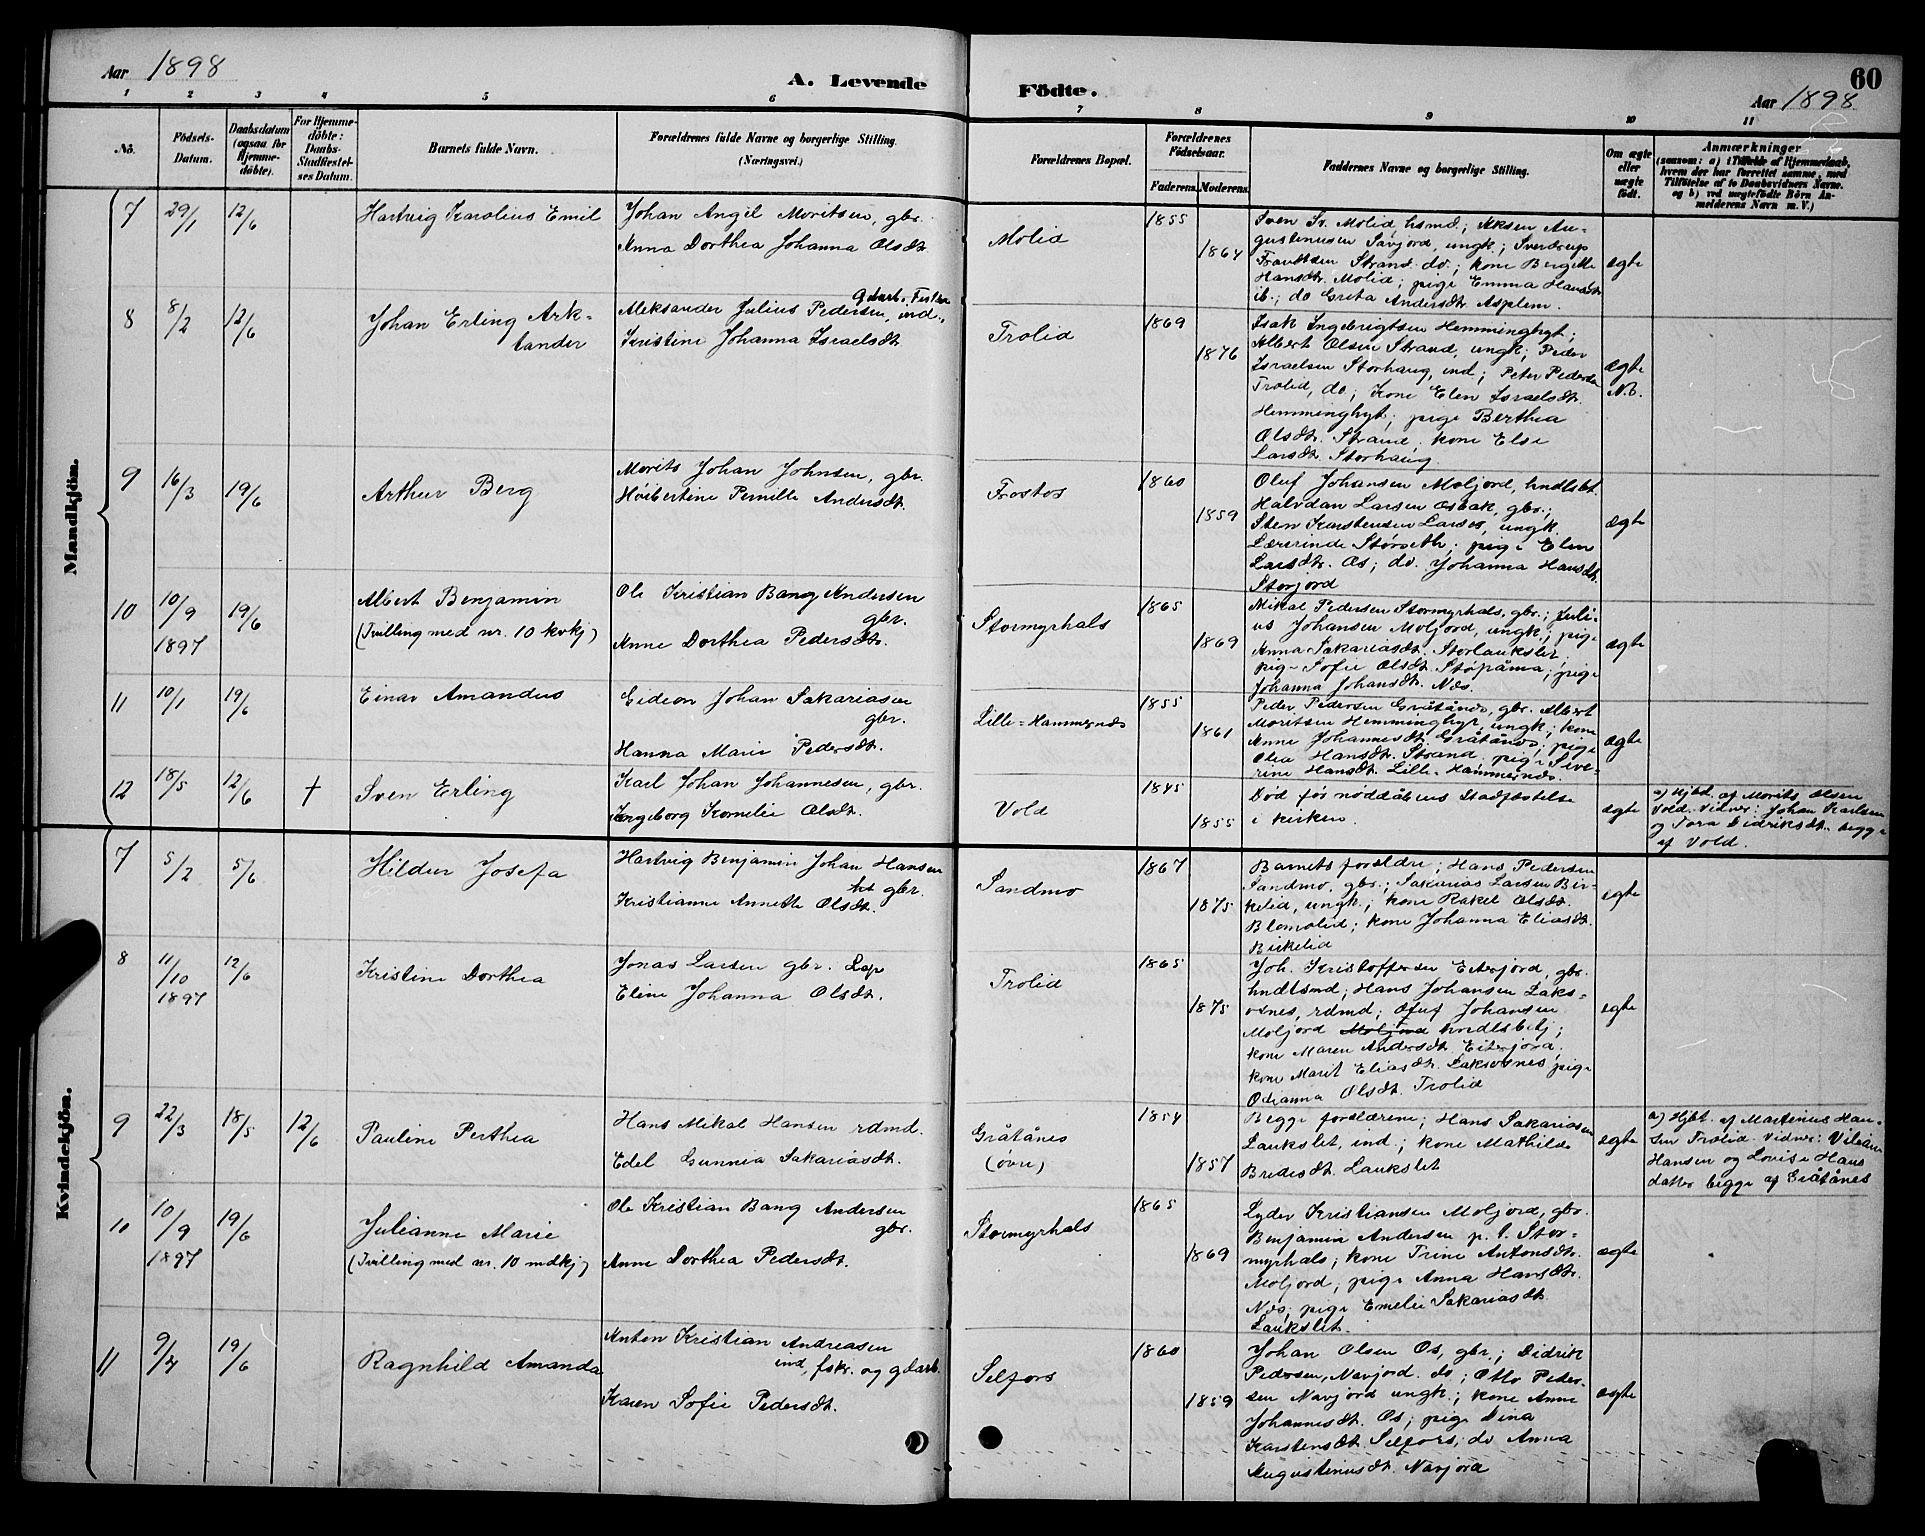 Aar 1898
A. Levende
Födte.
60
Aar 1898
1 2 3 4 5 6 7 8 9 10 11
No.
Födsels-
Datum.
Daabsdatum
(ogsaa for
Hjemme-
döbte).
For Hjemme-
döbte:
Daabs-
Stadfæstel-
ses Datum.
Barnets fulde Navn.
Forældrenes fulde Navne og borgerlige Stilling.
(Næringsvei.)
Forældrenes Bopæl.
Forældrenes
Födselsaar.
Faderens. Moderens.
Faddernes Navne og borgerlige Stilling.
Om ægte
eller
uægte
født.
Anmærkninger
(saasom: a) i Tilfælde af Hjemmedaab,
hvem der har forrettet samme, med
Tilföielse af to Daabsvidners Navne.
og b) ved uægtefödte Börn An-
melderens Navn m. V.)
Mandkjön.
7 29/1 12/6
Hartvig Karolius Emil
Johan Angel Moritsen, gbr.
Anna Dorthea Johanna Olsdt.
Molid
1855
1864
Sven Sv. Molid, hsmd; Aksen Au-
gustinusen Savjord, ungk; Sverdrup
Frantsen Strand do; kone Bergitte
Hansdt. Molid; pige Emma Hansdt.
ib.; do Greta Andersdt. Asplem.
ægte
8 8/2 12/6
Johan Erling Ark-
tander
Aleksander Julius Pedersen, ind.,
Kristine Johanna Israelsdt.
Trolid
1869
1876
Isak Ingebrigtsen Hemminghyt;
Albert Olsen Strand, ungk; Peder
Israelsen Storhaug, ind; Peter Pedersen
Trolid, do; Kone Elen Israelsdt.
Hemminghyt; pige Berthea
Olsdt. Strand. kone Else
Larsdt. Storhaug
ægte
N.B.
9 16/3 19/6
Arthur Berg
Morits Johan Johnsen, gbr.
Hérbertine Pernille Andersdt.
Frostos
1860
1859
Oluf Johansen Moljord, hndlsbt.
Halvdan Larsen Osbak, gbr;
Sten Karstensen Larsos, ungk.
Lærerinde Størseth; pige Elen
Larsdt. Os; do. Johanna Hansdt.
Storjord
ægte
10 10/9 19/6
1897
Albert Benjamin
(Tvilling med nr. 10 kvkj)
Ole Kristian Bang Andersen
gbr.
Anne Dorthea Pedersdt.
Stormyrhals
1865
1869
Mikal Pedersen Stormyrhals, gbr.; Juli-
us Johansen Moljord, ungk; pige
Anna Sakariasdt. Storlaukslet
pige Sofie Olsdt. Støpåma; pige
Johanna Johansdt. Næs.
ægte
11 10/1 19/6
Einar Amandus
Gideon Johan Sakariasen
gbr.
Hanna Marie Pedersdt.
Lille-Hammernes
1855
1861
Peder Pedersen Gråtånes, gbr. Albert
Moritsen Hemminghyt, ungk; kone
Anne Johannesdt. Gråtånes; pige
Olea Hansdt. Strand. pige Seve-
rine Hansdt. Lille-Hammernes.
ægte
12 18/5 12/6 †
Sven Erling
Karl Johan Johannesen, gbr.
Ingeborg Kornelie Olsdt.
Vold
1845
1855
Død før nøddåbens Stadfæstelse
i kirken.
ægte
a) Hjbd. af Morits Olsen
Vold. Vidner: Johan Karlsen
og Tora Didriksdt. begge
af Vold.
Kvindekjön.
7 5/2 5/6
Hildur Josefa
Hartvig Benjamin Johan Hansen
gbr.
Kristianne Annette Olsdt.
Sandmo
1867
1875
Barnets forældre; Hans Pedersen
Sandmo, gbr.; Sakarias Larsen Bir-
kelid, ungk.; kone Rakel Olsdt.
Blomolid; kone Johanna Eliasdt.
Birkelid
ægte
8 11/10 12/6
1897
Kristine Dorthea
Jonas Larsen gbr. Lap
Eline Johanna Olsdt.
Trolid
1865
1875
Joh. Kristoffersen Eiterjord, gbr.
hndlsmd; Hans Johansen Laks-
osnes, rdmd; Oluf Johansen
Moljord Moljord hndlsbetj;
kone Maren Andersdt. Eiterjord;
kone Marit Eliasdt. Laksosnes, pige
Odianna Olsdt. Trolid
ægte
9 22/3 18/5 12/6
Pauline Perthea
Hans Mikal Hansen rdmd.
Edel Gunnia Sakariasdt.
Gråtånes
(øvre)
1854
1857
Begge forældrene; Hans Sakariasen
Laukslet, ind.; kone Mathilde
Bredesdt. Laukslet
ægte
a) Hjbt. af Martenius Han-
sen Trolid. Vidner: Viliam
Hansen og Lovise Hans
datter begge af Gråtånes
10 10/9 19/6
1897
Julianne Marie
(Tvilling med nr. 10 mdkj)
Ole Kristian Bang Andersen
gbr.
Anne Dorthea Pedersdt.
Stormyrhals
1865
1869
Lyder Kristiansen Moljord, gbr.
Benjamin Andersen p. t. Stor-
myrhals; kone Trine Antonsdt.
Moljord; pige Anna Hansdt.
Næs; pige Emelie Sakariasdt.
Laukslet.
ægte
11 9/4 19/6
Ragnhild Amanda
Anton Kristian Andreasen
ind., fskr. og gdarb.
Karen Sofie Pedersdt.
Selfors
1860
1859
Johan Olsen Os, gbr.; Didrik
Pedersen, Navjord. do; Otto Peder-
sen Navjord ungk.; kone Anne
Johannesdt. Os; pige Dina
Karstensdt. Selfors; do Anna
Augustinusdt. Navjord
ægte